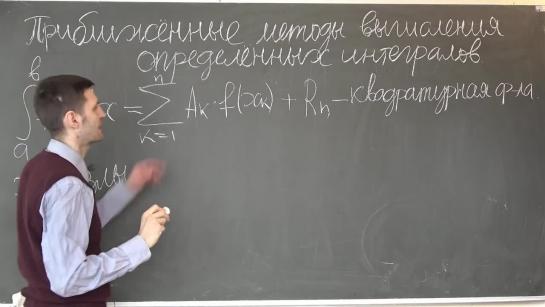 Приближённые методы вычисления
определённых интегралов
∫ₐᵇ x = ∑ₖ₌₁ⁿ Aₖ · f(xₖ) + Rₙ – квадратурная ф-ла.